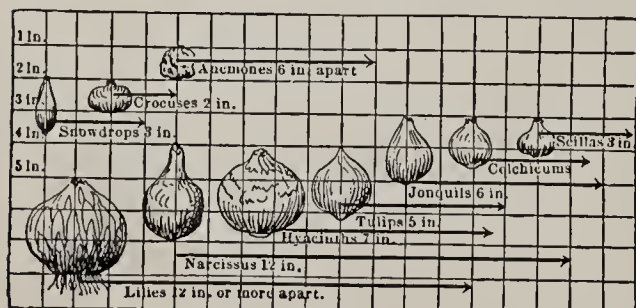 1 In.
Anemones 6 in. apart
2 In.
Crocuses 2 in.
3 In.
Snowdrops 3 in.
Scillas 3 in.
4 In.
Colchicums
5 In.
Jonquils 6 in.
Tulips 5 in.
Hyacinths 7 in.
Narcissus 12 in.
Lilies 12 in. or more apart.